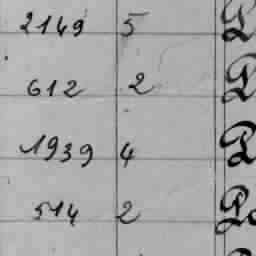 2149 5
612 2
1939 4
514 2